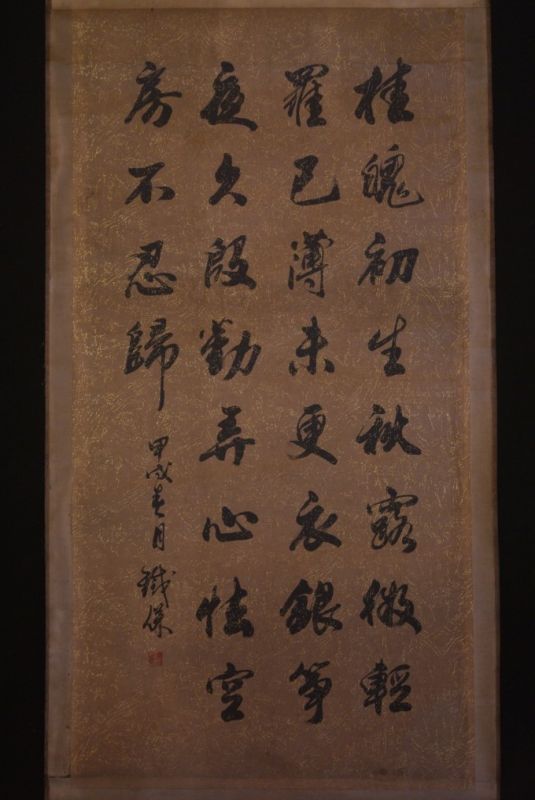 桂魄初生秋露微輕
羅已薄未更衣銀箏
夜久殷勤弄心怯空
房不忍歸
甲戌春月 鐵保